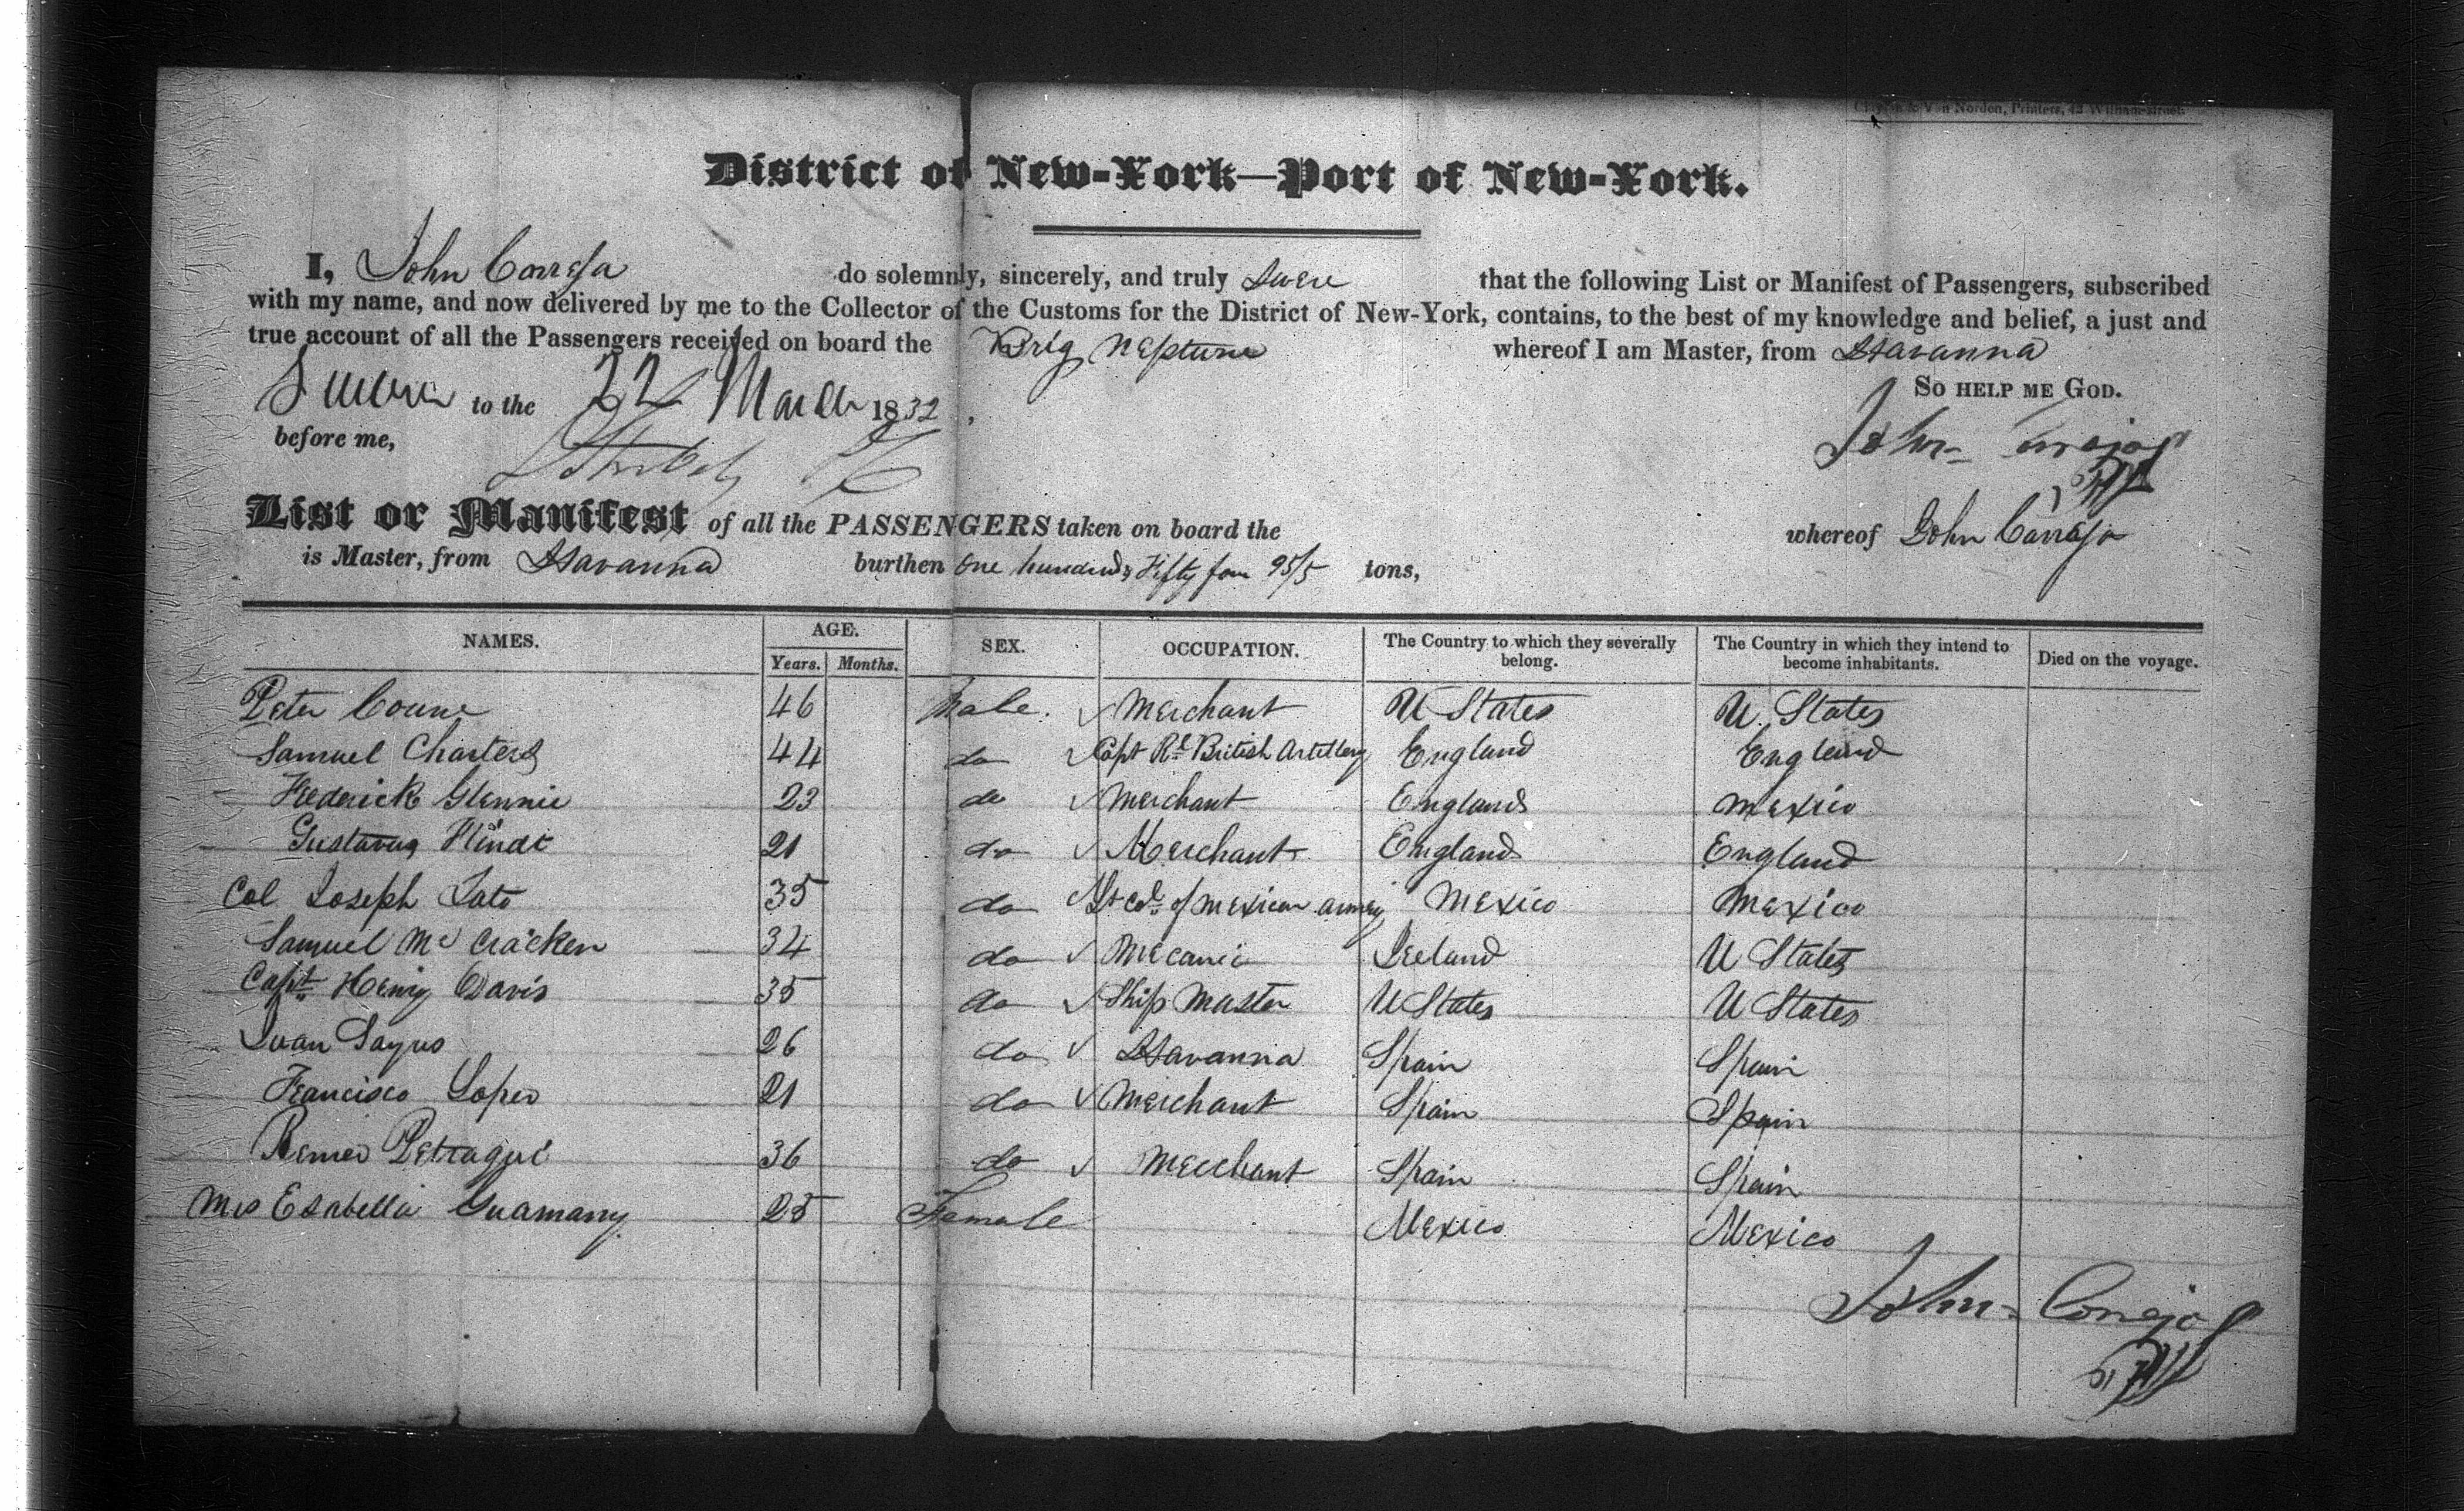 Clayton & Van Norden, Printers, 42 William-street.
District of New-York—Port of New-York.
I, John Carreja do solemnly, sincerely, and truly Swere that the following List or Manifest of Passengers, subscribed
with my name, and now delivered by me to the Collector of the Customs for the District of New-York, contains, to the best of my knowledge and belief, a just and
true account of all the Passengers received on board the Brig Neptune whereof I am Master, from Havanna
So HELP ME GOD.
Sworn to the 22 March 1832,
before me,
John
List or Manifest of all the PASSENGERS taken on board the whereof John Carrajo
is Master, from Havanna burthen One hundred & Fifty four 95/5 tons,
NAMES. AGE. SEX. OCCUPATION. The Country to which they severally belong. The Country in which they intend to become inhabitants. Died on the voyage.
Years. Months.
Peter 46 Male. Merchant U States U. States
Samuel Charters 44 do Capt Rl British Artillery England England
Frederick Glennie 23 do Merchant England Mexico
Gustavus Hindt 21 do Merchant England England
Col Joseph Tato 35 do Lt Col. of Mexican army Mexico Mexico
Samuel Mc Cracken 34 do Mecanic Ireland U States
Capt. Henry Davis 35 do Ship Master U States U States
Juan Sayus 26 do Havanna Spain Spain
Francisco Lopes 21 do Merchant Spain Spain
36 do Merchant Spain Spain
Mrs Esabella Guamany 25 Female Mexico Mexico
John Correjo